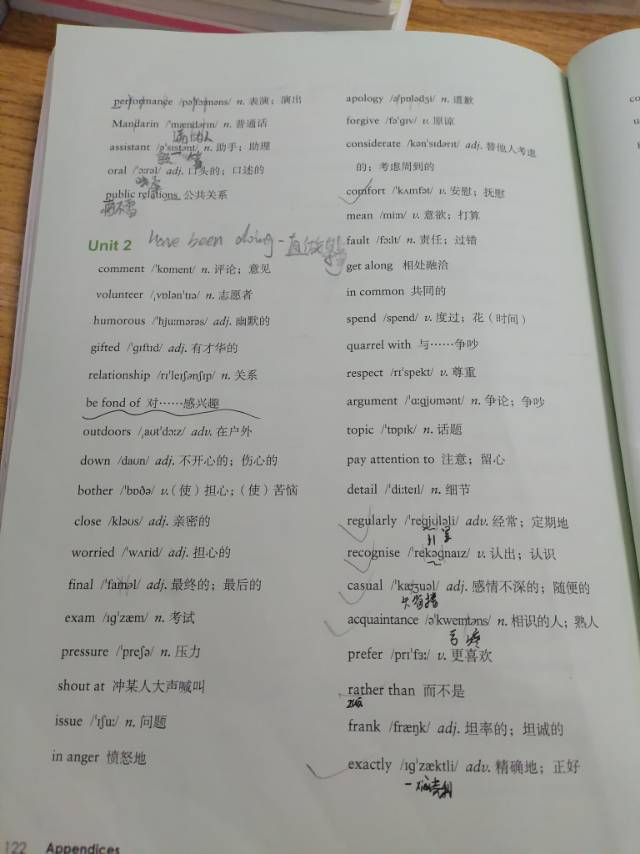 performance /pəˈfɔːməns/ n. 表演；演出
Mandarin /ˈmændərɪn/ n. 普通话
assistant /əˈsɪstənt/ n. 助手；助理
oral /ˈɔːrəl/ adj. 口头的；口述的
public relations 公共关系
Unit 2 have been doing
comment /ˈkɒment/ n. 评论；意见
volunteer /ˌvɒlənˈtɪə/ n. 志愿者
humorous /ˈhjuːmərəs/ adj. 幽默的
gifted /ˈɡɪftɪd/ adj. 有才华的
relationship /rɪˈleɪʃənʃɪp/ n. 关系
be fond of 对……感兴趣
outdoors /ˌaʊtˈdɔːz/ adv. 在户外
down /daʊn/ adj. 不开心的；伤心的
bother /ˈbɒðə/ v.（使）担心；（使）苦恼
close /kləʊs/ adj. 亲密的
worried /ˈwʌrid/ adj. 担心的
final /ˈfaɪnəl/ adj. 最终的；最后的
exam /ɪɡˈzæm/ n. 考试
pressure /ˈpreʃə/ n. 压力
shout at 冲某人大声喊叫
issue /ˈɪʃuː/ n. 问题
in anger 愤怒地
122 Appendices
apology /əˈpɒlədʒi/ n. 道歉
forgive /fəˈɡɪv/ v. 原谅
considerate /kənˈsɪdərɪt/ adj. 替他人考虑
的；考虑周到的
comfort /ˈkʌmfət/ v. 安慰；抚慰
mean /miːn/ v. 意欲；打算
fault /fɔːlt/ n. 责任；过错
get along 相处融洽
in common 共同的
spend /spend/ v. 度过；花（时间）
quarrel with 与……争吵
respect /rɪˈspekt/ v. 尊重
argument /ˈɑːɡjʊmənt/ n. 争论；争吵
topic /ˈtɒpɪk/ n. 话题
pay attention to 注意；留心
detail /ˈdiːteɪl/ n. 细节
regularly /ˈreɡjʊləli/ adv. 经常；定期地
recognise /ˈrekəɡnaɪz/ v. 认出；认识
casual /ˈkæʒuəl/ adj. 感情不深的；随便的
acquaintance /əˈkweɪntəns/ n. 相识的人；熟人
prefer /prɪˈfɜː/ v. 更喜欢
rather than 而不是
frank /fræŋk/ adj. 坦率的；坦诚的
exactly /ɪɡˈzæktli/ adv. 精确地；正好